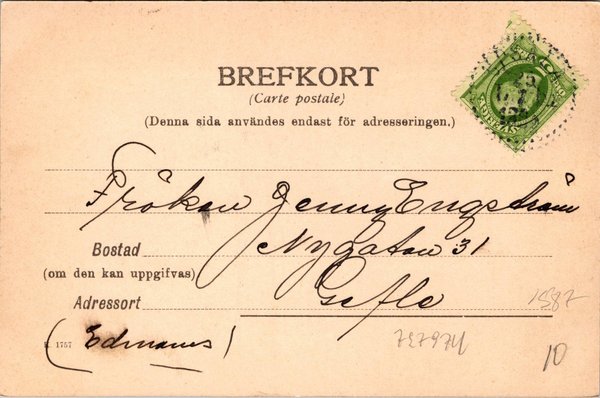 BREFKORT
(Carte postale)
(Denna sida användes endast för adresseringen.)
Fröken Jenny Engström
Bostad Nygatan 31
(om den kan uppgifvas)
Adressort Gefle
1587
(Edmans)
1757
10